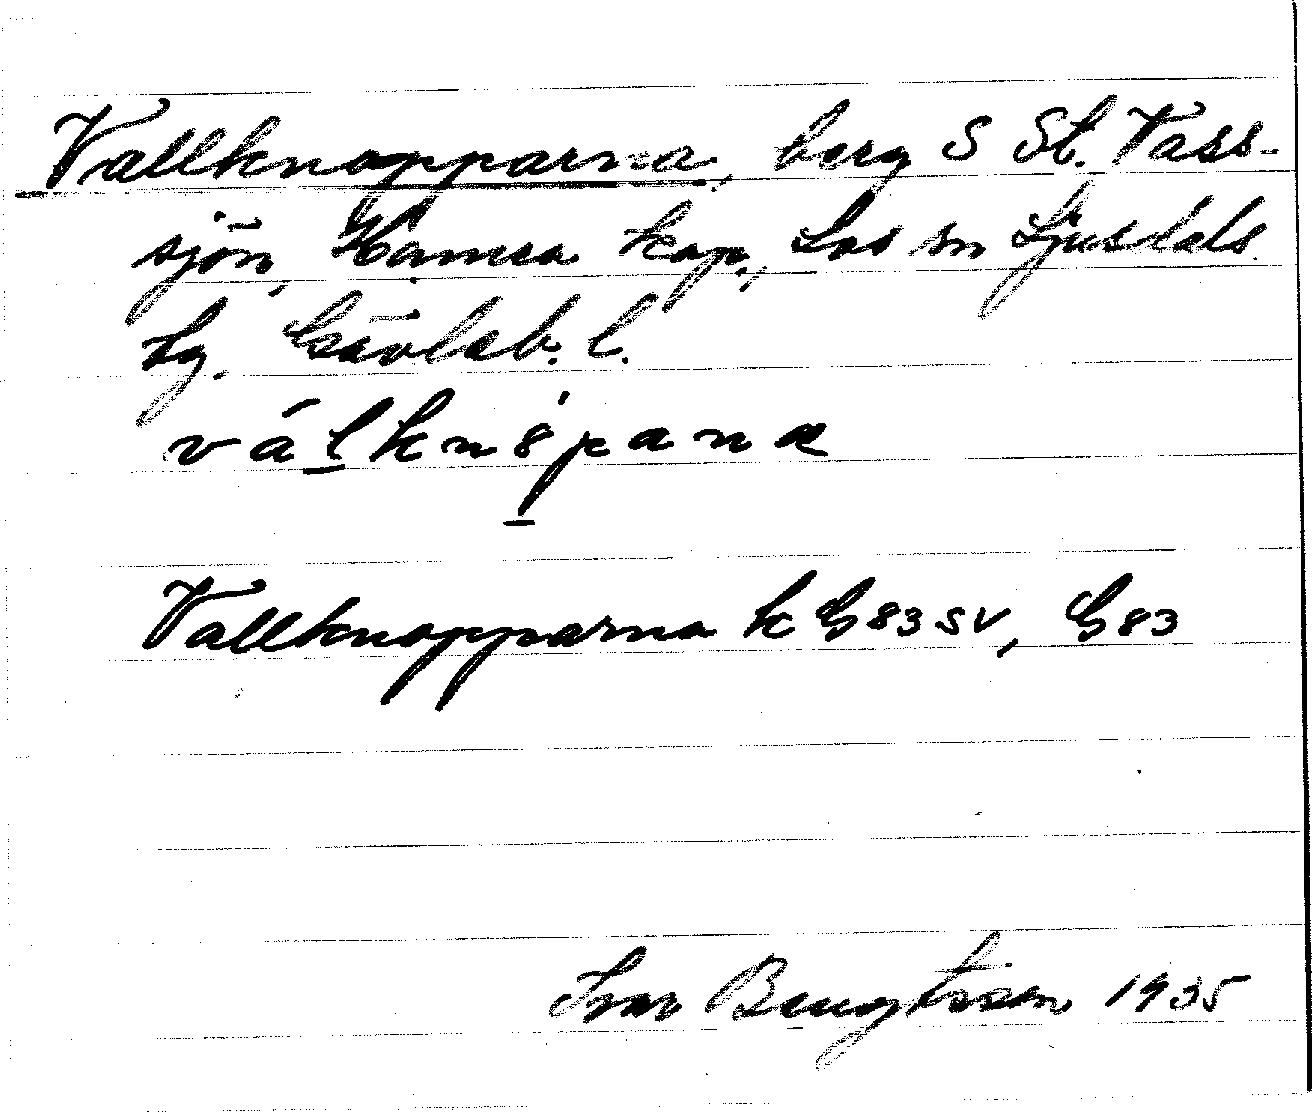 Vallknopparna, berg S St. Vass-
sjön, Hamra kap., Los sn Ljusdals
tg. Gävleb. l.
válkn8̍pana
Vallknopparna k G83SV, G83
Ivar Bengtsson 1935